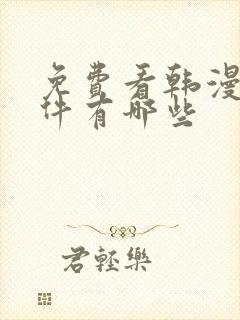 免费看韩漫
件有哪些
君轻乐